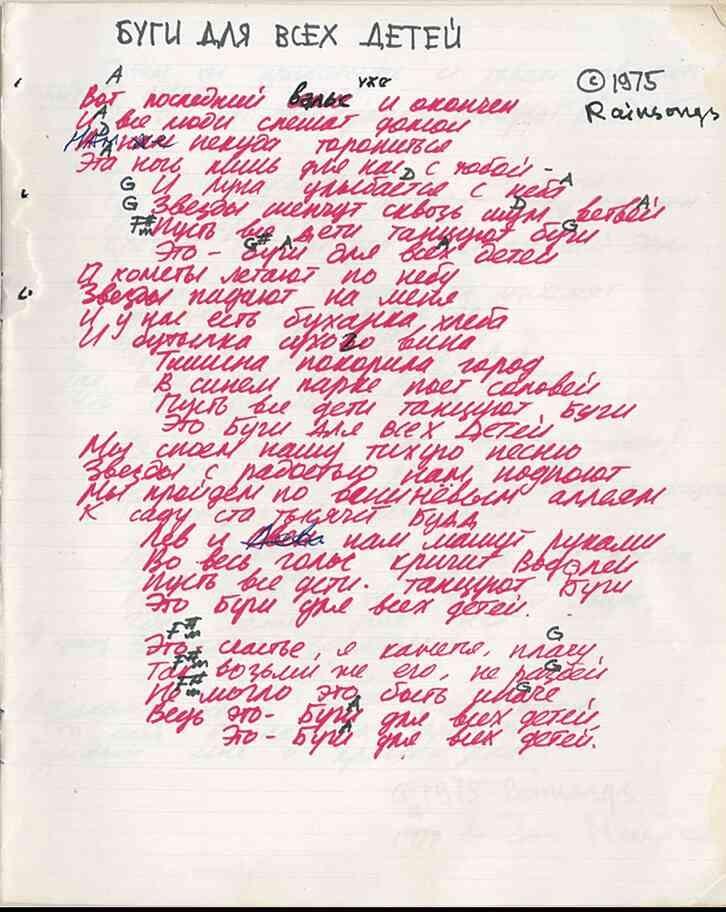 БУГИ ДЛЯ ВСЕХ ДЕТЕЙ
© 1975
Rainsongs
A
уже
Вот последний вальс и окончен
A
И все люди спешат домой
D
Нам некуда торопиться
A
Эта ночь лишь для нас с тобой -
G D A
И луна улыбается с неба
G D A
Звезды шепчут сквозь шум ветвей
F#m G
Пусть все дети танцуют буги
G# A A
Это - Буги для всех детей
А кометы летают по небу
Звезды падают на меня
И у нас есть буханка хлеба
И бутылка сухого вина
Тишина покорила город
В синем парке поет соловей
Пусть все дети танцуют Буги
Это Буги для всех Детей
Мы споем нашу тихую песню
Звезды с радостью нам подпоют
Мы пройдем по аллеям
К саду ста тысячи Будд
Лев и нам машут руками
Во весь голос кричит Водолей
Пусть все дети. танцуют Буги
Это Буги для всех детей.
F#m G
Это счастье, я кажется, плачу,
F#m G
Так возьми же его, не разбей
F#m G
Не могло это быть иначе
A
Ведь это - Буги для всех детей
A
Это - Буги для всех детей.